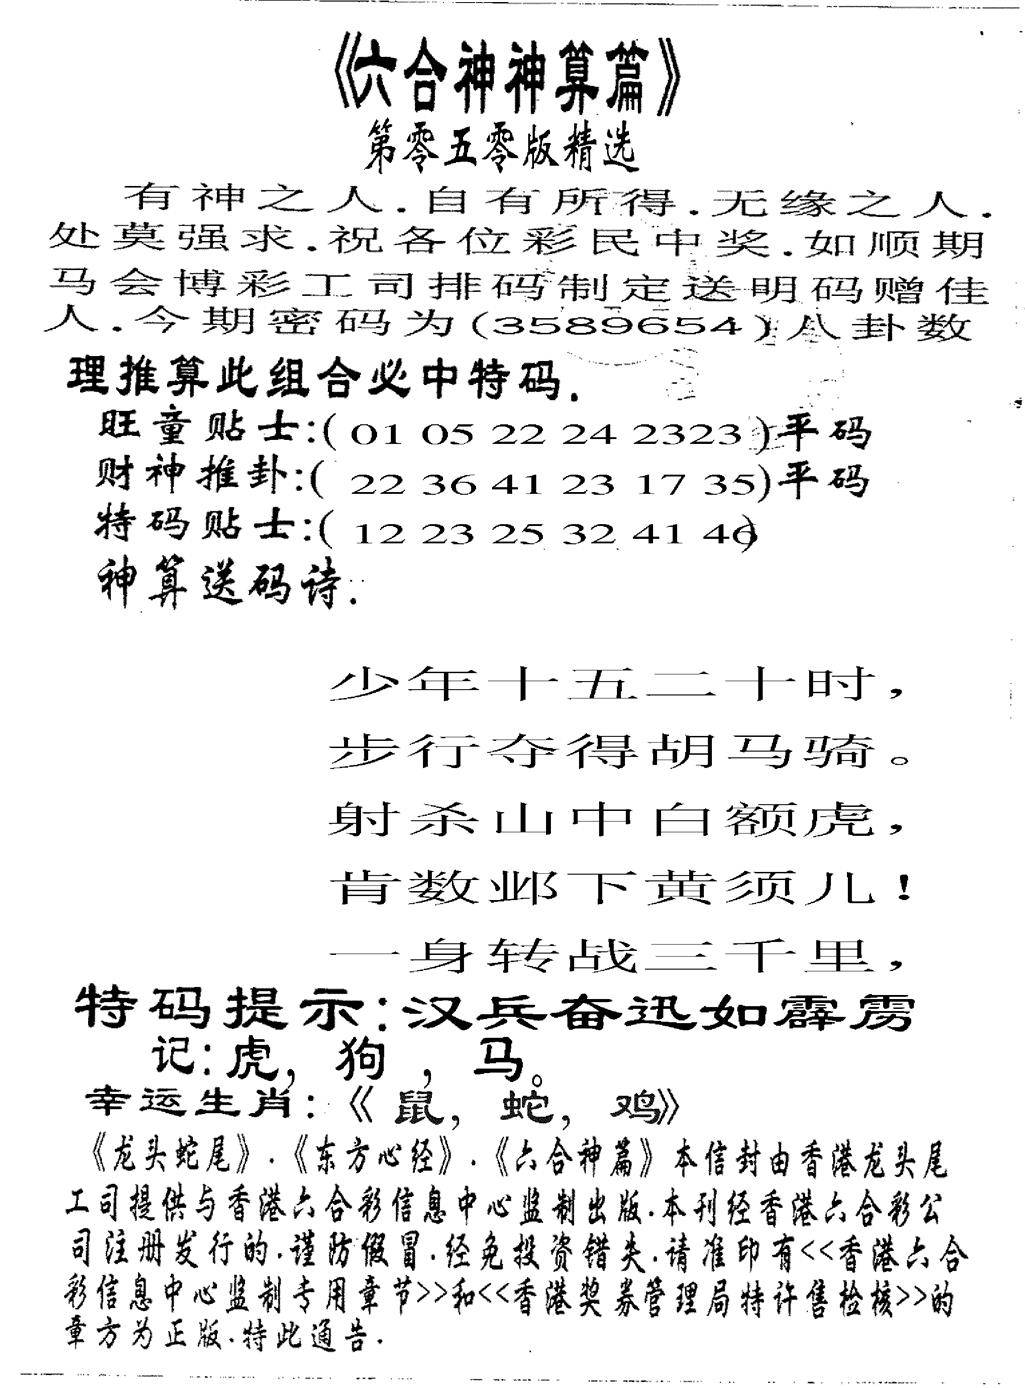 《六合神神算篇》
第零五零版精选
有神之人.自有所得.无缘之人.
处莫强求.祝各位彩民中奖.如顺期
马会博彩工司排码制定送明码赠佳
人.今期密码为(3589654)八卦数
理推算此组合必中特码.
旺童贴士:( 01 05 22 24 2323 )平码
财神推卦:( 22 36 41 23 17 35)平码
特码贴士:( 12 23 25 32 41 46)
神算送码诗.
少年十五二十时，
步行夺得胡马骑。
射杀山中白额虎，
肯数邺下黄须儿！
一身转战三千里，
特码提示:汉兵奋迅如霹雳
记:虎，狗，马。
幸运生肖:《鼠，蛇，鸡》
《龙头蛇尾》.《东方心经》.《六合神篇》本信封由香港龙头尾
工司提供与香港六合彩信息中心监制出版.本刊经香港六合彩公
司注册发行的.谨防假冒.经免投资错失.请准印有<<香港六合
彩信息中心监制专用章节>>和<<香港奖券管理局特许售检核>>的
章方为正版.特此通告.